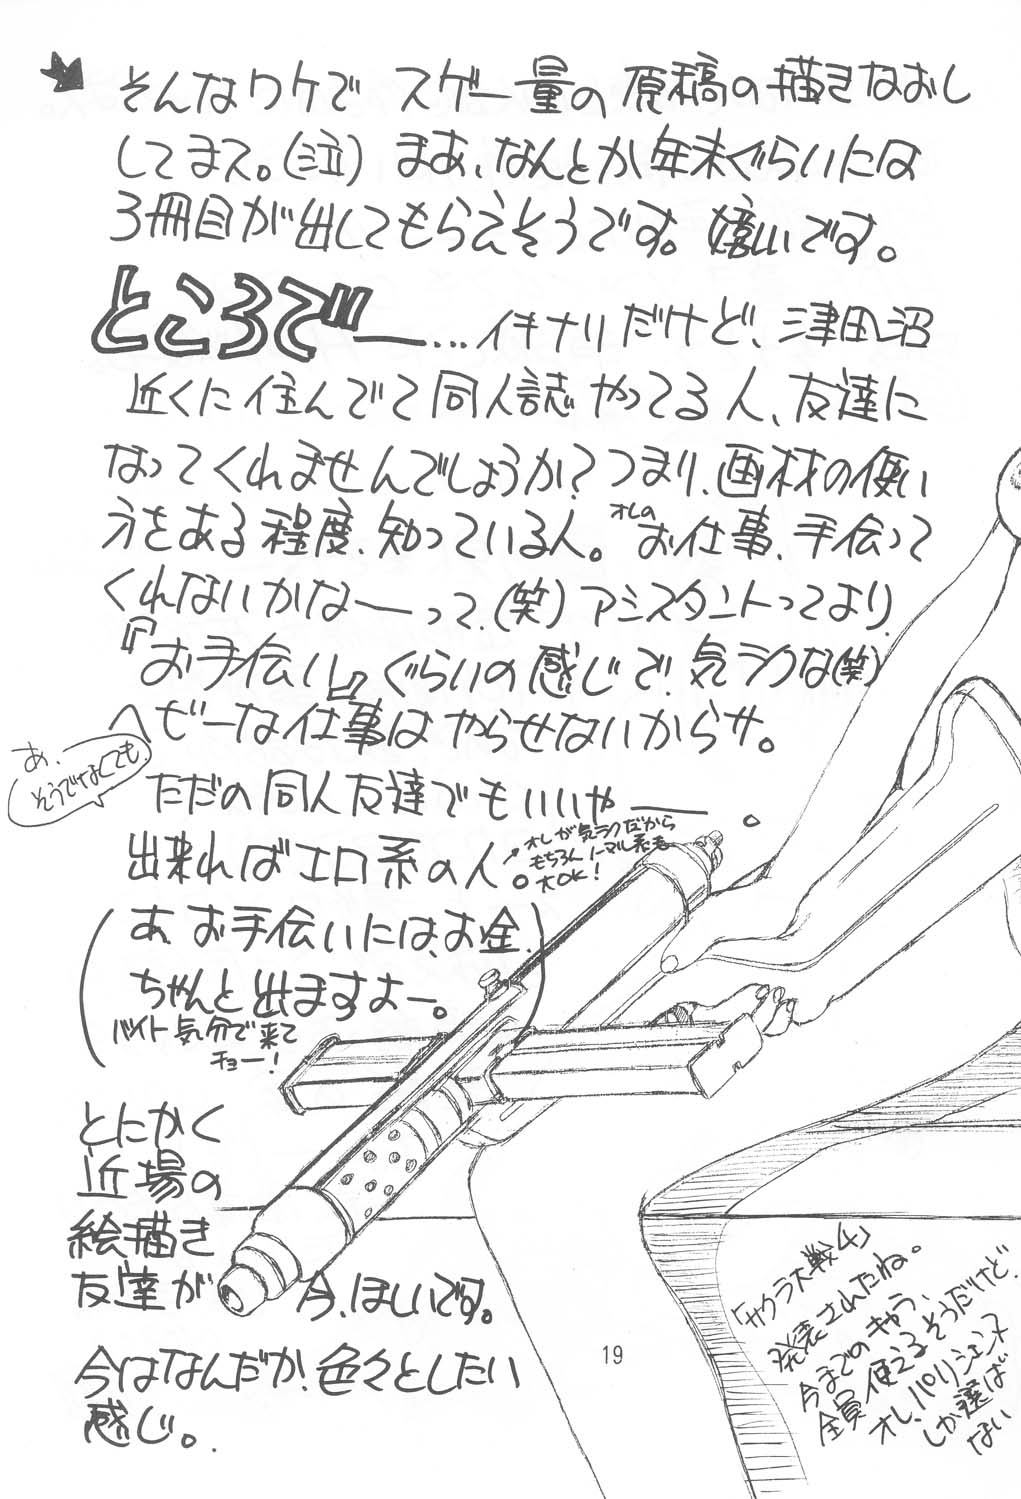 そんなワケで スゲー量の原稿の描きなおし
してまス。(泣) まあ、なんとか年末ぐらいには
3冊目が出してもらえそうです。嬉しいです。
ところでー…イキナリだけど、津田沼
近くに住んでて同人誌やってる人、友達に
なってくれませんでしょうか?つまり、画材の使い
方をある程度、知っている人。オレのお仕事、手伝って
くれないかなーって、(笑)アシスタントってより、
『お手伝い』ぐらいの感じで!気ラクな(笑)
ヘビーな仕事はやらせないからサ。
あ、そうでなくても、
ただの同人友達でもいいやー。
出来ればエロ系の人。
オレが気ラクだから
もちろんノーマル系も
大OK!
(あ、お手伝いには、お金、
ちゃんと出ますよー。
バイト気分で来て
チョー!)
とにかく
近場の
絵描き
友達が 今、ほしいです。
今はなんだか、色々としたい
感じ。
「サクラ大戦4」
発表されたね。
今までのキャラ、
全員使えるそうだけど、
オレ、パリジェンヌ
しか選ば
ない
19